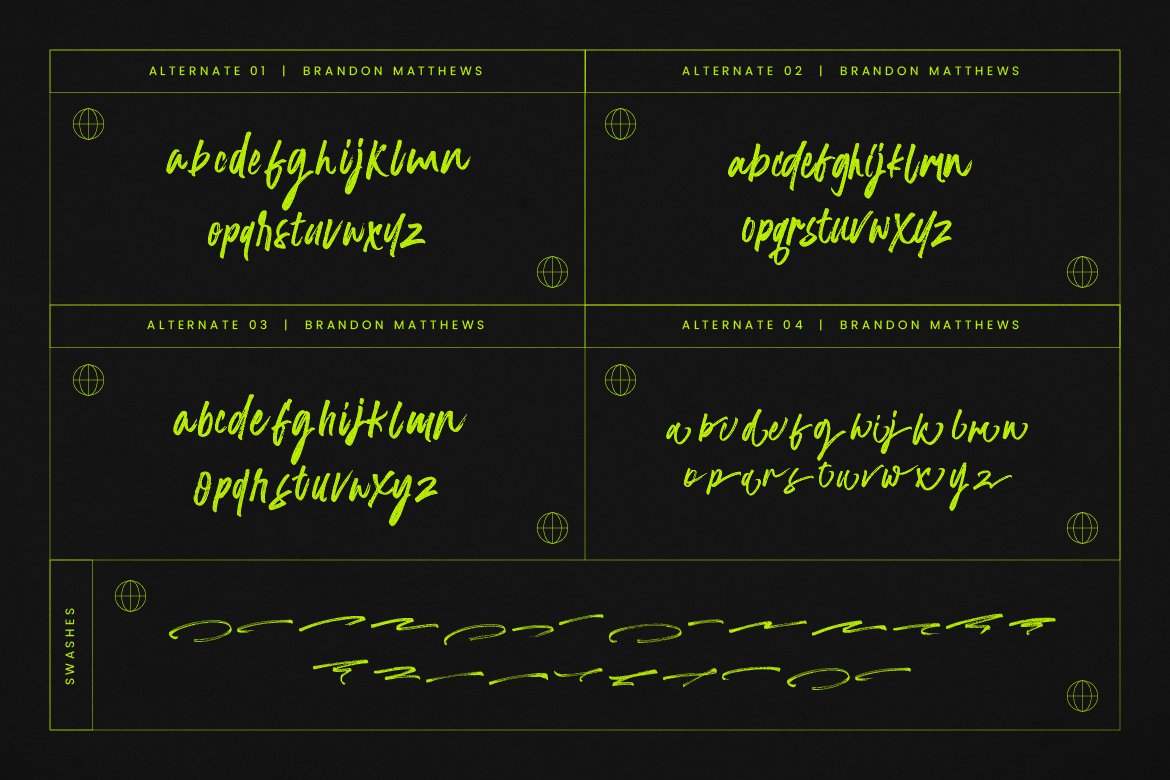 ALTERNATE 01 | BRANDON MATTHEWS
abcdefghijklmn
opqrstuvwxyz
ALTERNATE 02 | BRANDON MATTHEWS
abcdefghijklmn
opqrstuvwxyz
ALTERNATE 03 | BRANDON MATTHEWS
abcdefghijklmn
opqrstuvwxyz
ALTERNATE 04 | BRANDON MATTHEWS
abcdefghijklmn
opqrstuvwxyz
SWASHES